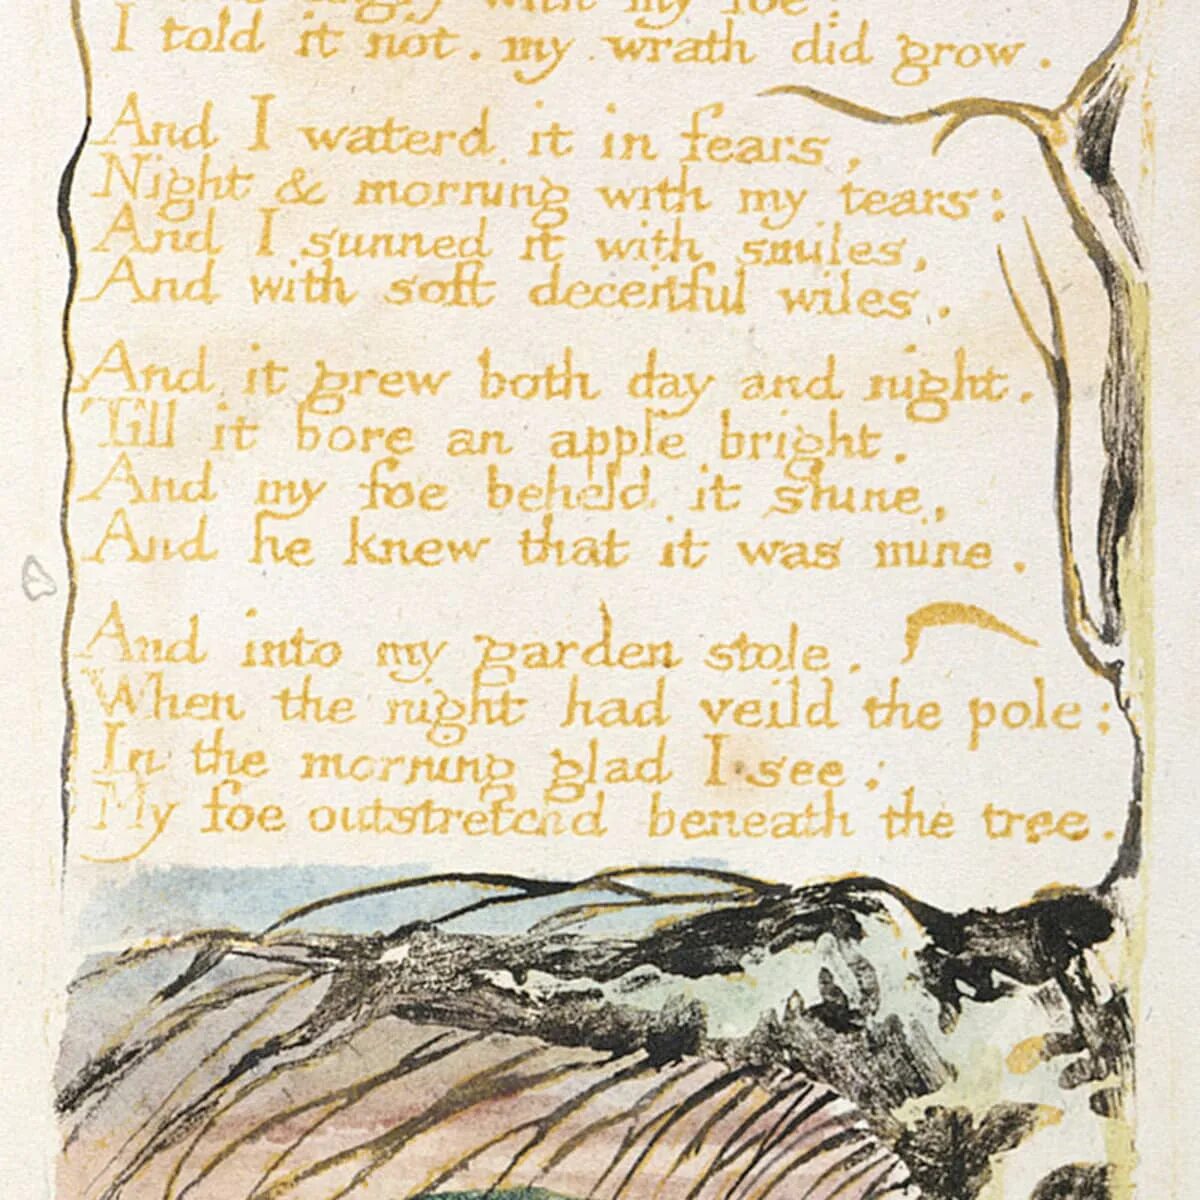 angry with my foe:
I told it not. my wrath did grow.
And I waterd it in fears,
Night & morning with my tears:
And I sunned it with smiles,
And with soft deceitful wiles.
And it grew both day and night.
Till it bore an apple bright.
And my foe beheld it shine,
And he knew that it was mine.
And into my garden stole.
When the night had veild the pole;
In the morning glad I see;
My foe outstretchd beneath the tree.